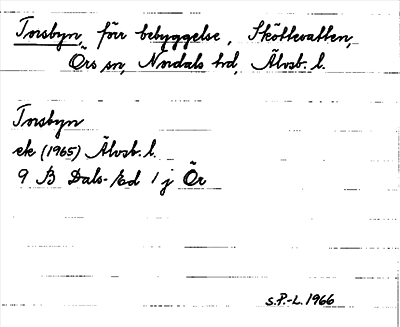 Torsbyn, förr bebyggelse, Sköttevatten,
Örs sn, Nordals hd, Älvsb. l.
Torsbyn
ek (1965) Älvsb. l.
9 B Dals-Ed 1 j Ör
S.P.-L. 1966